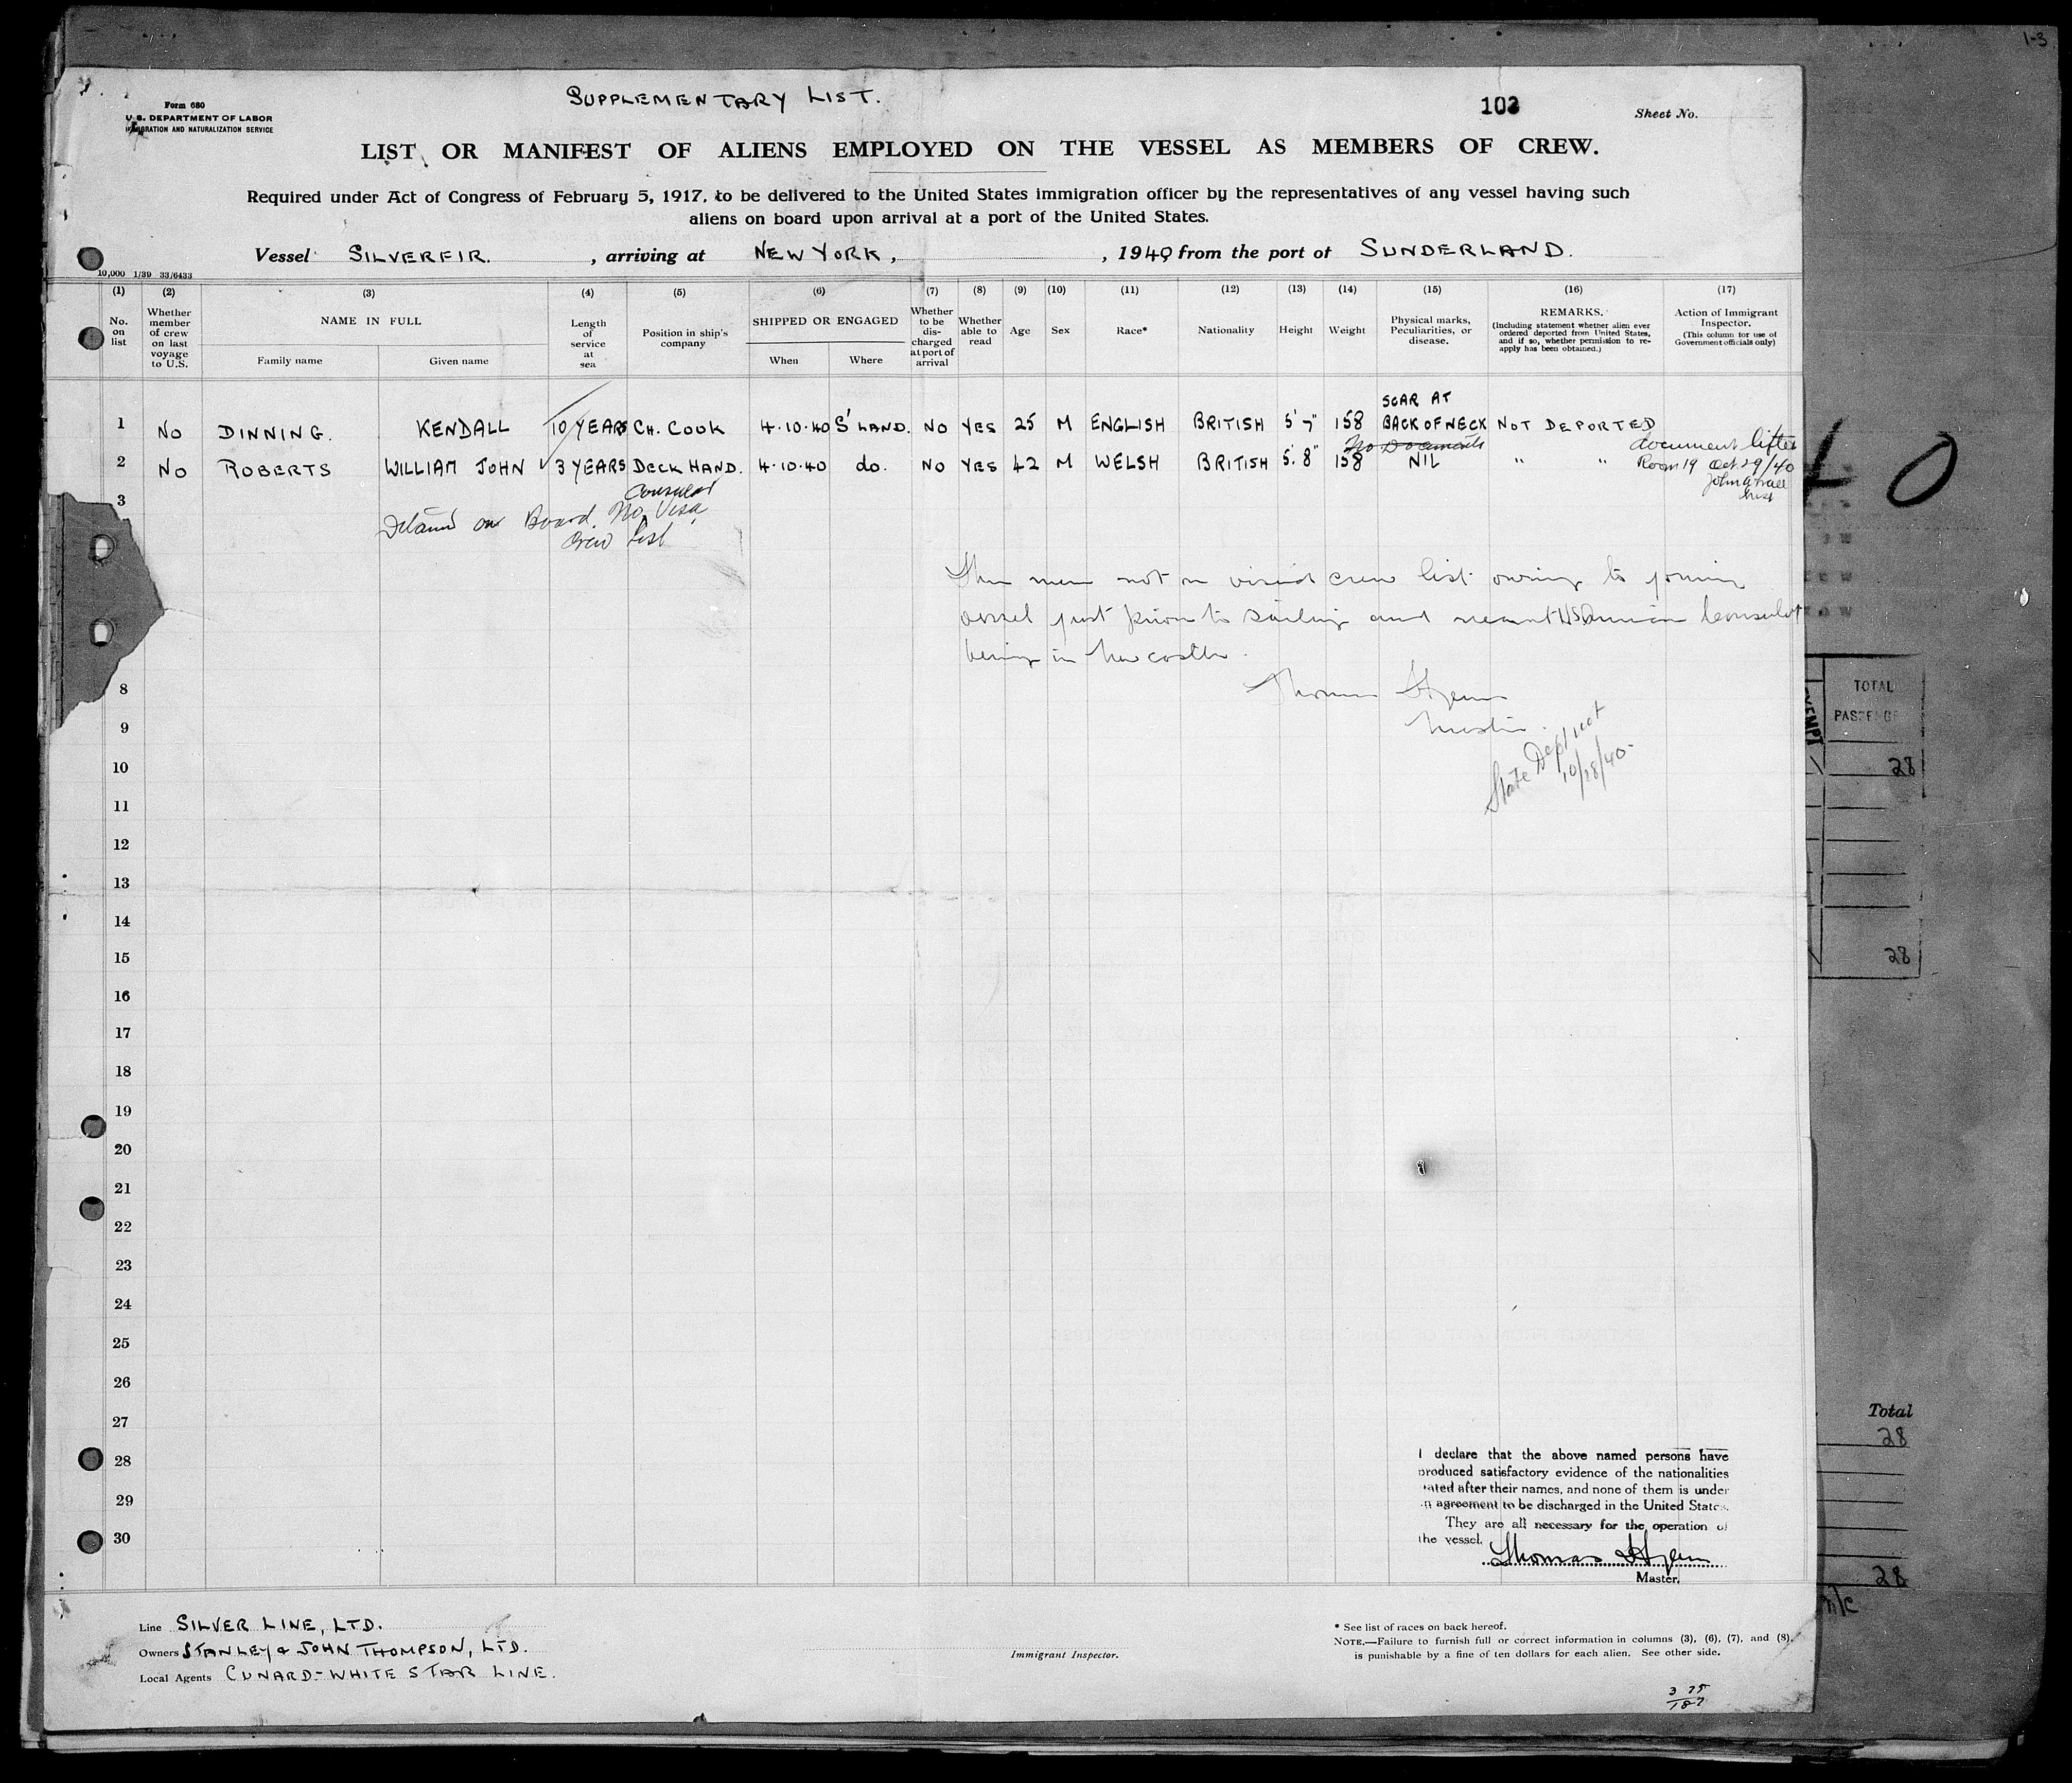 1-3
Form 680
U.S. DEPARTMENT OF LABOR
IMMIGRATION AND NATURALIZATION SERVICE
SUPPLEMENTARY LIST.
Sheet No.
LIST OR MANIFEST OF ALIENS EMPLOYED ON THE VESSEL AS MEMBERS OF CREW.
Required under Act of Congress of February 5, 1917, to be delivered to the United States immigration officer by the representatives of any vessel having such
aliens on board upon arrival at a port of the United States.
Vessel SILVERFIR. , arriving at NEW YORK, , 1940 from the port of SUNDERLAND.
10,000 1/39 33/6433
(1) (2) (3) (4) (5) (6) (7) (8) (9) (10) (11) (12) (13) (14) (15) (16) (17)
No. on list
Whether member of crew on last voyage to U.S.
NAME IN FULL
Family name Given name
Length of service at sea
Position in ship's company
SHIPPED OR ENGAGED
When Where
Whether to be discharged at port of arrival
Whether able to read
Age
Sex
Race*
Nationality
Height
Weight
Physical marks, Peculiarities, or disease.
REMARKS.
(Including statement whether alien ever ordered deported from United States, and if so, whether permission to re-apply has been obtained.)
Action of Immigrant Inspector.
(This column for use of Government officials only)
1 NO DINNING. KENDALL 10 YEARS CH. COOK 4·10·40 S'LAND. NO YES 25 M ENGLISH BRITISH 5' 7" 158 SCAR AT BACK OF NECK NOT DEPORTED
No Documents
2 NO ROBERTS WILLIAM JOHN 3 YEARS DECK HAND. 4·10·40 do. NO YES 42 M WELSH BRITISH 5' 8" 158 NIL " "
document lifted
Room 19 Oct. 29/40
3
Consular
Detained on Board. No Visa
Crew List
These men not on visaed crew list owing to joining
vessel just prior to sailing and nearest US American Consulate
being in Newcastle.
Thomas
Master
State Dept not
10/28/40
8
9
10
11
12
13
14
15
16
17
18
19
20
21
22
23
24
25
26
27
28
29
30
I declare that the above named persons have
produced satisfactory evidence of the nationalities
stated after their names, and none of them is under
an agreement to be discharged in the United States.
They are all necessary for the operation of
the vessel.
Thomas
Master.
Line SILVER LINE, LTD.
Owners STANLEY & JOHN THOMPSON, LTD.
Local Agents CUNARD-WHITE STAR LINE.
Immigrant Inspector.
* See list of races on back hereof.
NOTE.—Failure to furnish full or correct information in columns (3), (6), (7), and (8),
is punishable by a fine of ten dollars for each alien. See other side.
0
TOTAL
28
28
Total
28
28
n/c